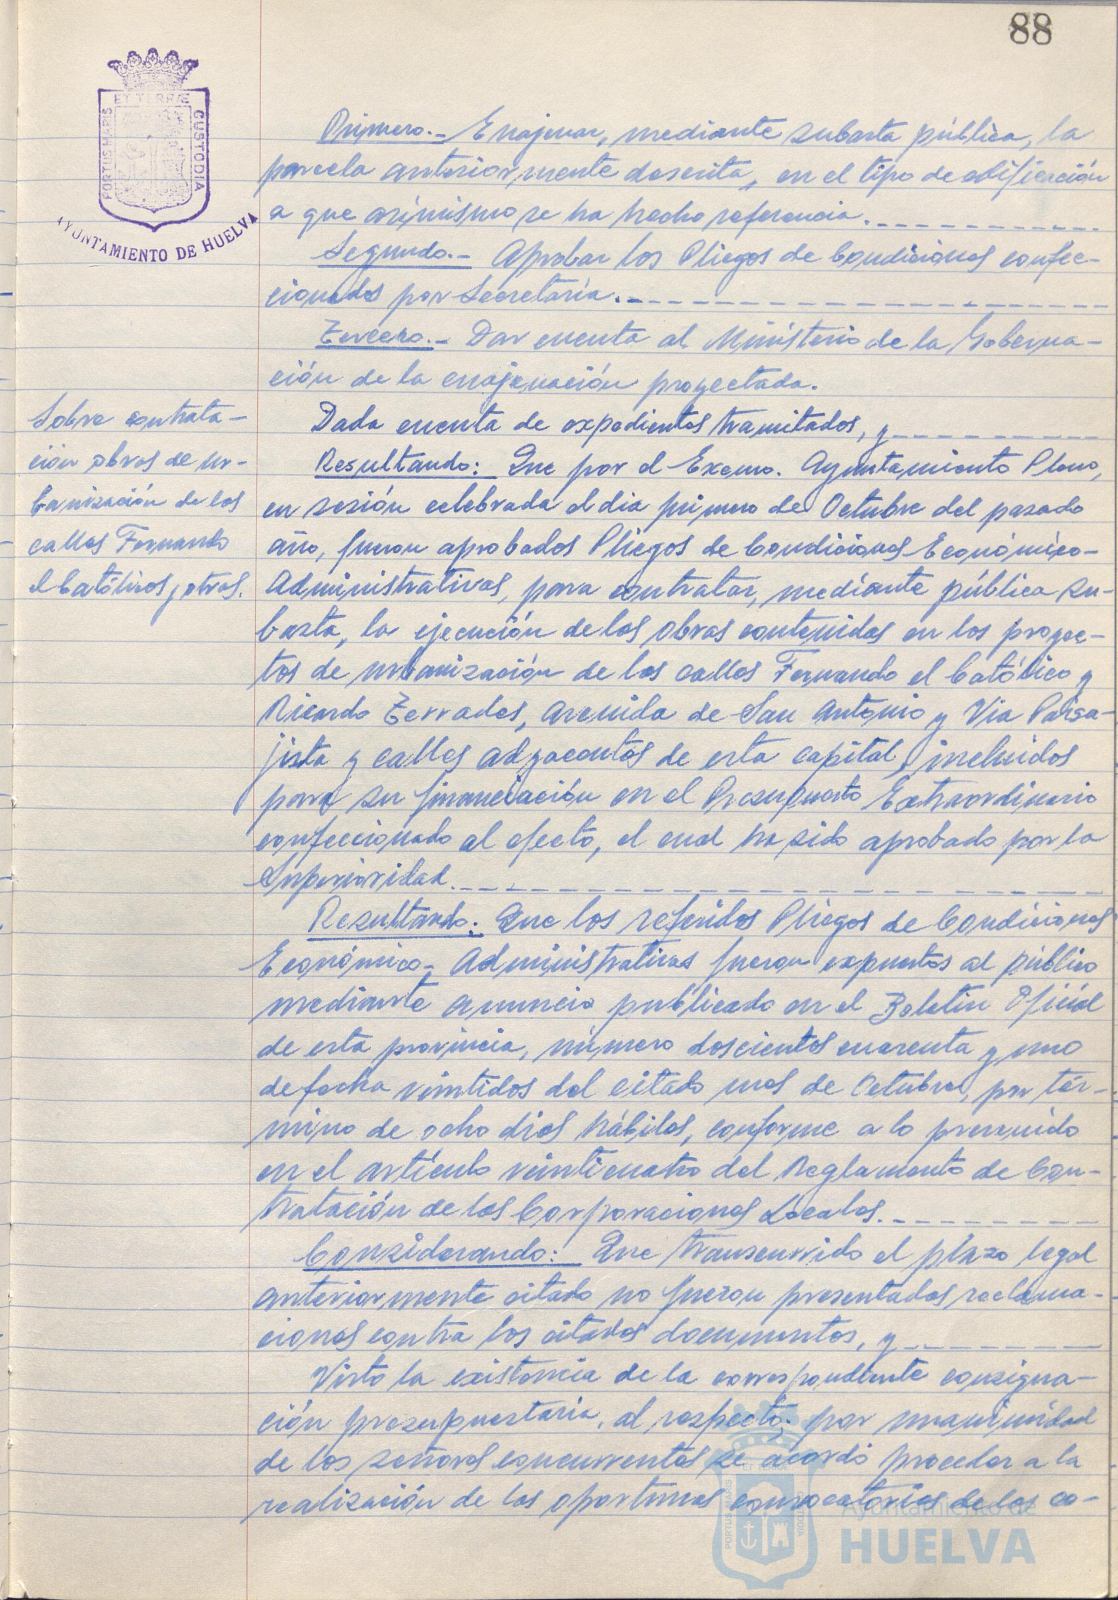 88
PORTUS MARIS ET TERRÆ CUSTODIA
AYUNTAMIENTO DE HUELVA
Primero.- Enajenar, mediante subasta pública, la
parcela anteriormente descrita, en el tipo de edificación
a que asimismo se ha hecho referencia.
Segundo.- Aprobar los Pliegos de Condiciones confec-
cionados por Secretaría.
Tercero.- Dar cuenta al Ministerio de la Goberna-
ción de la enajenación proyectada.
Sobre contrata-
ción obras de ur-
banización de las
calles Fernando
el Católicos y otras.
Dada cuenta de expedientes tramitados, y
Resultando: Que por el Excmo. Ayuntamiento Pleno,
en sesión celebrada el dia primero de Octubre del pasado
año, fueron aprobados Pliegos de Condiciones Económico-
Administrativas, para contratar, mediante pública su-
basta, la ejecución de las obras contenidas en los proyec-
tos de urbanización de las calles Fernando el Católico y
Ricardo Terrades, Avenida de San Antonio y Via Paisa-
jista y calles adyacentes de esta capital, incluidos
para su financiación en el Presupuesto Extraordinario
confeccionado al efecto, el cual ha sido aprobado por la
Superioridad.
Resultando: Que los referidos Pliegos de Condiciones
Económico-Administrativas fueron expuestos al público
mediante anuncio publicado en el Boletín Oficial
de esta provincia, número doscientos cuarenta y uno
de fecha veintidos del citado mes de Octubre, por tér-
mino de ocho dias hábiles, conforme a lo prevenido
en el artículo veinticuatro del Reglamento de Con-
tratación de las Corporaciones Locales.
Considerando: Que transcurrido el plazo legal
anteriormente citado no fueron presentadas reclama-
ciones contra los citados documentos, y
Visto la existencia de la correspondiente consigna-
ción presupuestaria, al respecto; por unanimidad
de los señores concurrentes se acordó proceder a la
realización de las oportunas convocatorias de las co-
Ayuntamiento de
HUELVA